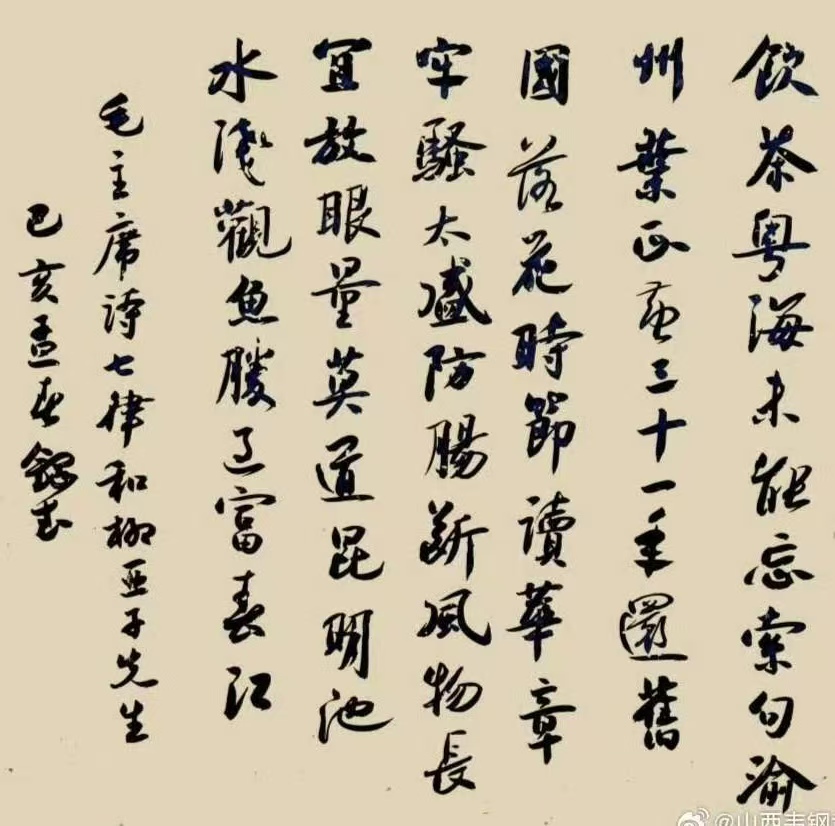 飲茶粵海未能忘索句渝
州葉正黃三十一年還舊
國落花時節讀華章
牢騷太盛防腸斷風物長
宜放眼量莫道昆明池
水淺觀魚勝過富春江
毛主席诗七律和柳亚子先生
己亥孟春
@山西韦钢